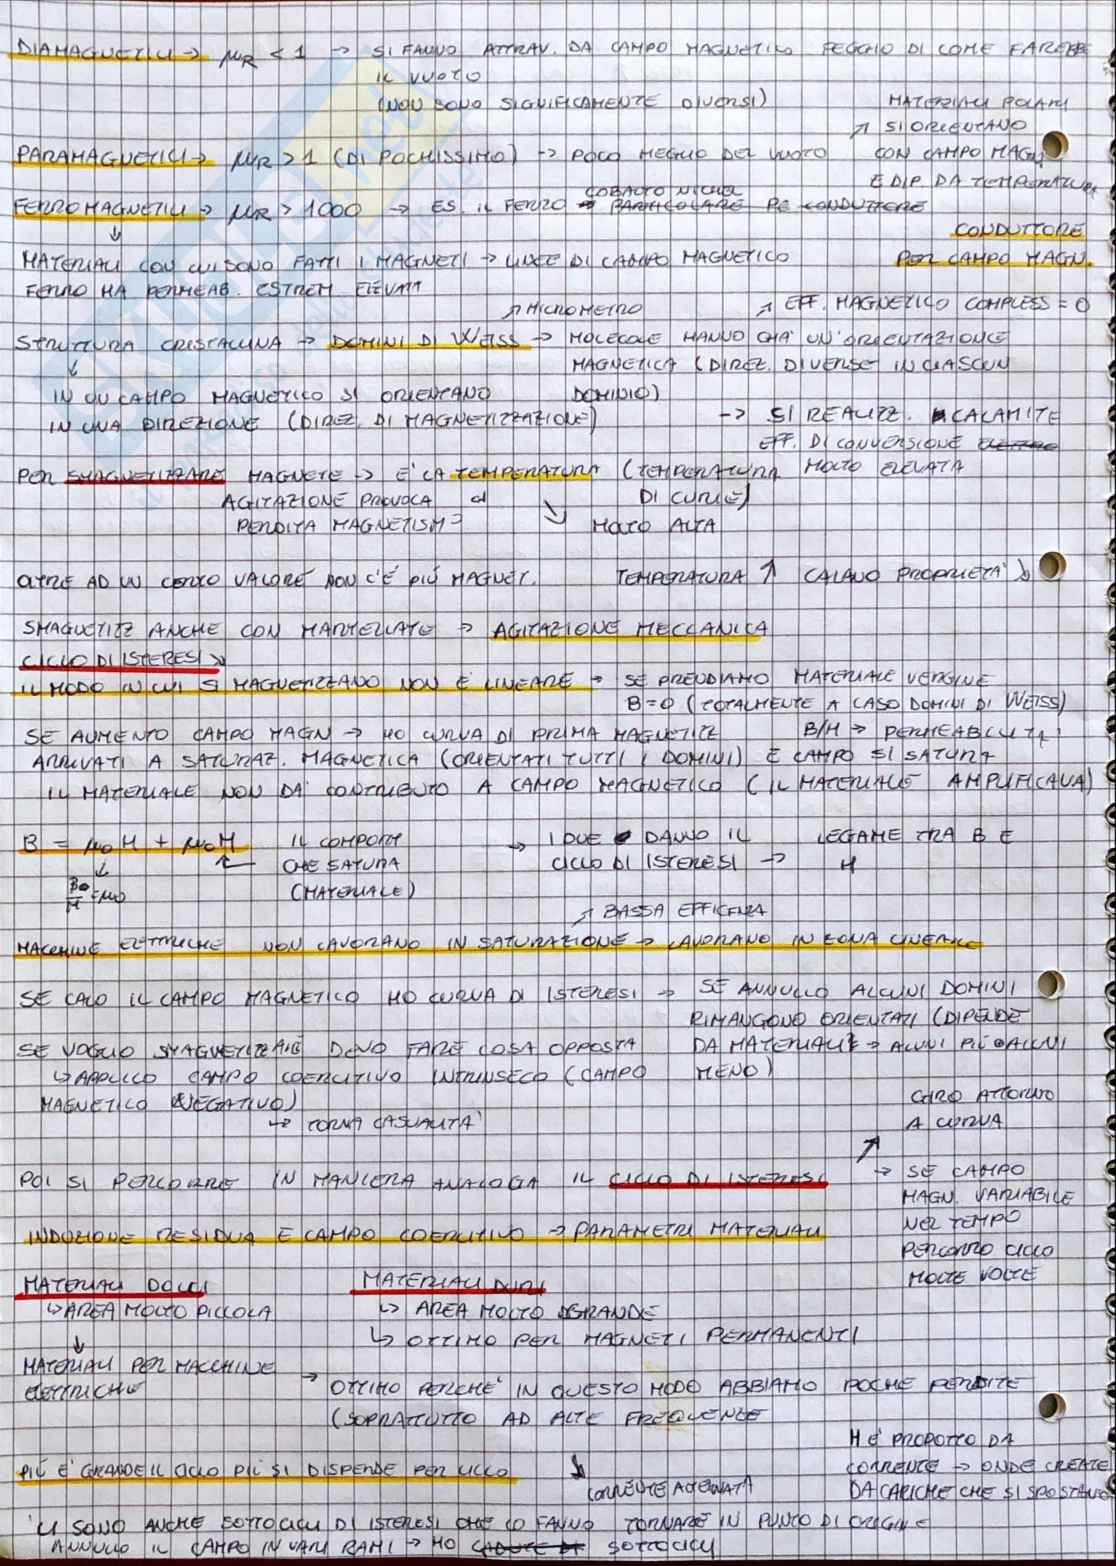 DIAMAGNETICI → μR < 1 → SI FANNO ATTRAV. DA CAMPO MAGNETICO PEGGIO DI COME FAREBBE
IL VUOTO
(NON SONO SIGNIFICAMENTE DIVERSI)
MATERIALI POLARI
↗ SI ORIENTANO
PARAMAGNETICI → μR > 1 (DI POCHISSIMO) → POCO MEGLIO DEL VUOTO
CON CAMPO MAGN
E DIP DA TEMPERATURA
COBALTO NICHEL
FERROMAGNETICI → μR > 1000 → ES. IL FERRO → PARTICOLARE PE CONDUTTORE
↓
CONDUTTORE
PER CAMPO MAGN.
MATERIALI CON CUI SONO FATTI I MAGNETI → LINEE DI CAMPO MAGNETICO
FERRO HA PERMEAB. ESTREM ELEVATA
↗ MICROMETRO
↗ EFF. MAGNETICO COMPLESS = 0
STRUTTURA CRISTALLINA → DOMINI DI WEISS → MOLECOLE HANNO GIA' UN'ORIENTAZIONE
↓
MAGNETICA (DIREZ. DIVERSE IN CIASCUN
DOMINIO)
IN UN CAMPO MAGNETICO SI ORIENTANO
IN UNA DIREZIONE (DIREZ. DI MAGNETIZZAZIONE)
→ SI REALIZZ. CALAMITE
EFF. DI CONVERSIONE
MOLTO ELEVATA
PER SMAGNETIZZARE MAGNETE → E' LA TEMPERATURA (TEMPERATURA
DI CURIE)
AGITAZIONE PROVOCA
PERDITA MAGNETISMO
↘ MOLTO ALTA
OLTRE AD UN CERTO VALORE NON C'È PIÙ MAGNET.
TEMPERATURA ↑ CALANO PROPRIETA' ↘
SMAGNETIZZ ANCHE CON MARTELLATE → AGITAZIONE MECCANICA
CICLO DI ISTERESI ↘
IL MODO IN CUI SI MAGNETIZZANO NON È LINEARE → SE PRENDIAMO MATERIALE VERGINE
B=0 (TOTALMENTE A CASO DOMINI DI WEISS)
SE AUMENTO CAMPO MAGN → HO CURVA DI PRIMA MAGNETIZZ
B/H → PERMEABILITA'
ARRIVATI A SATURAZ. MAGNETICA (ORIENTATI TUTTI I DOMINI) E CAMPO SI SATURA
IL MATERIALE NON DA' CONTRIBUTO A CAMPO MAGNETICO (IL MATERIALE AMPLIFICAVA)
B = μ0H + μ0H
↓
B0/H = μ0
IL COMPONT
CHE SATURA
(MATERIALE)
→ I DUE DANNO IL
CICLO DI ISTERESI →
LEGAME TRA B E
H
↗ BASSA EFFICENZA
MACCHINE ELETTRICHE NON LAVORANO IN SATURAZIONE → LAVORANO IN ZONA LINEARE
SE CALO IL CAMPO MAGNETICO HO CURVA DI ISTERESI → SE ANNULLO ALCUNI DOMINI
RIMANGONO ORIENTATI (DIPENDE
DA MATERIALI → ALCUNI PIÙ ALCUNI
MENO)
SE VOGLIO SMAGNETIZZARE DEVO FARE COSA OPPOSTA
↳ APPLICO CAMPO COERCITIVO INTRINSECO (CAMPO
MAGNETICO NEGATIVO)
↳ TORNA CASUALITA'
GIRO ATTORNO
A CURVA
↗
POI SI PERCORRE IN MANIERA ANALOGA IL CICLO DI ISTERESI
→ SE CAMPO
MAGN. VARIABILE
NEL TEMPO
PERCORRO CICLO
MOLTE VOLTE
INDUZIONE RESIDUA E CAMPO COERCITIVO → PARAMETRI MATERIALI
MATERIALI DOLCI
↳ AREA MOLTO PICCOLA
↓
MATERIALI PER MACCHINE
ELETTRICHE
MATERIALI DURI
↳ AREA MOLTO GRANDE
↳ OTTIMO PER MAGNETI PERMANENTI
→ OTTIMO PERCHE' IN QUESTO MODO ABBIAMO POCHE PERDITE
(SOPRATTUTTO AD ALTE FREQUENZE
PIÙ E' GRANDE IL CICLO PIÙ SI DISPENDE PER CICLO
↓
CORRENTE ALTERNATA
H E' PRODOTTO DA
CORRENTE → ONDE CREATE
DA CARICHE CHE SI SPOSTANO
CI SONO ANCHE SOTTOCICLI DI ISTERESI CHE LO FANNO TORNARE IN PUNTO DI ORIGINE
ANNULLO IL CAMPO IN VARI RAMI → HO SOTTOCICLI